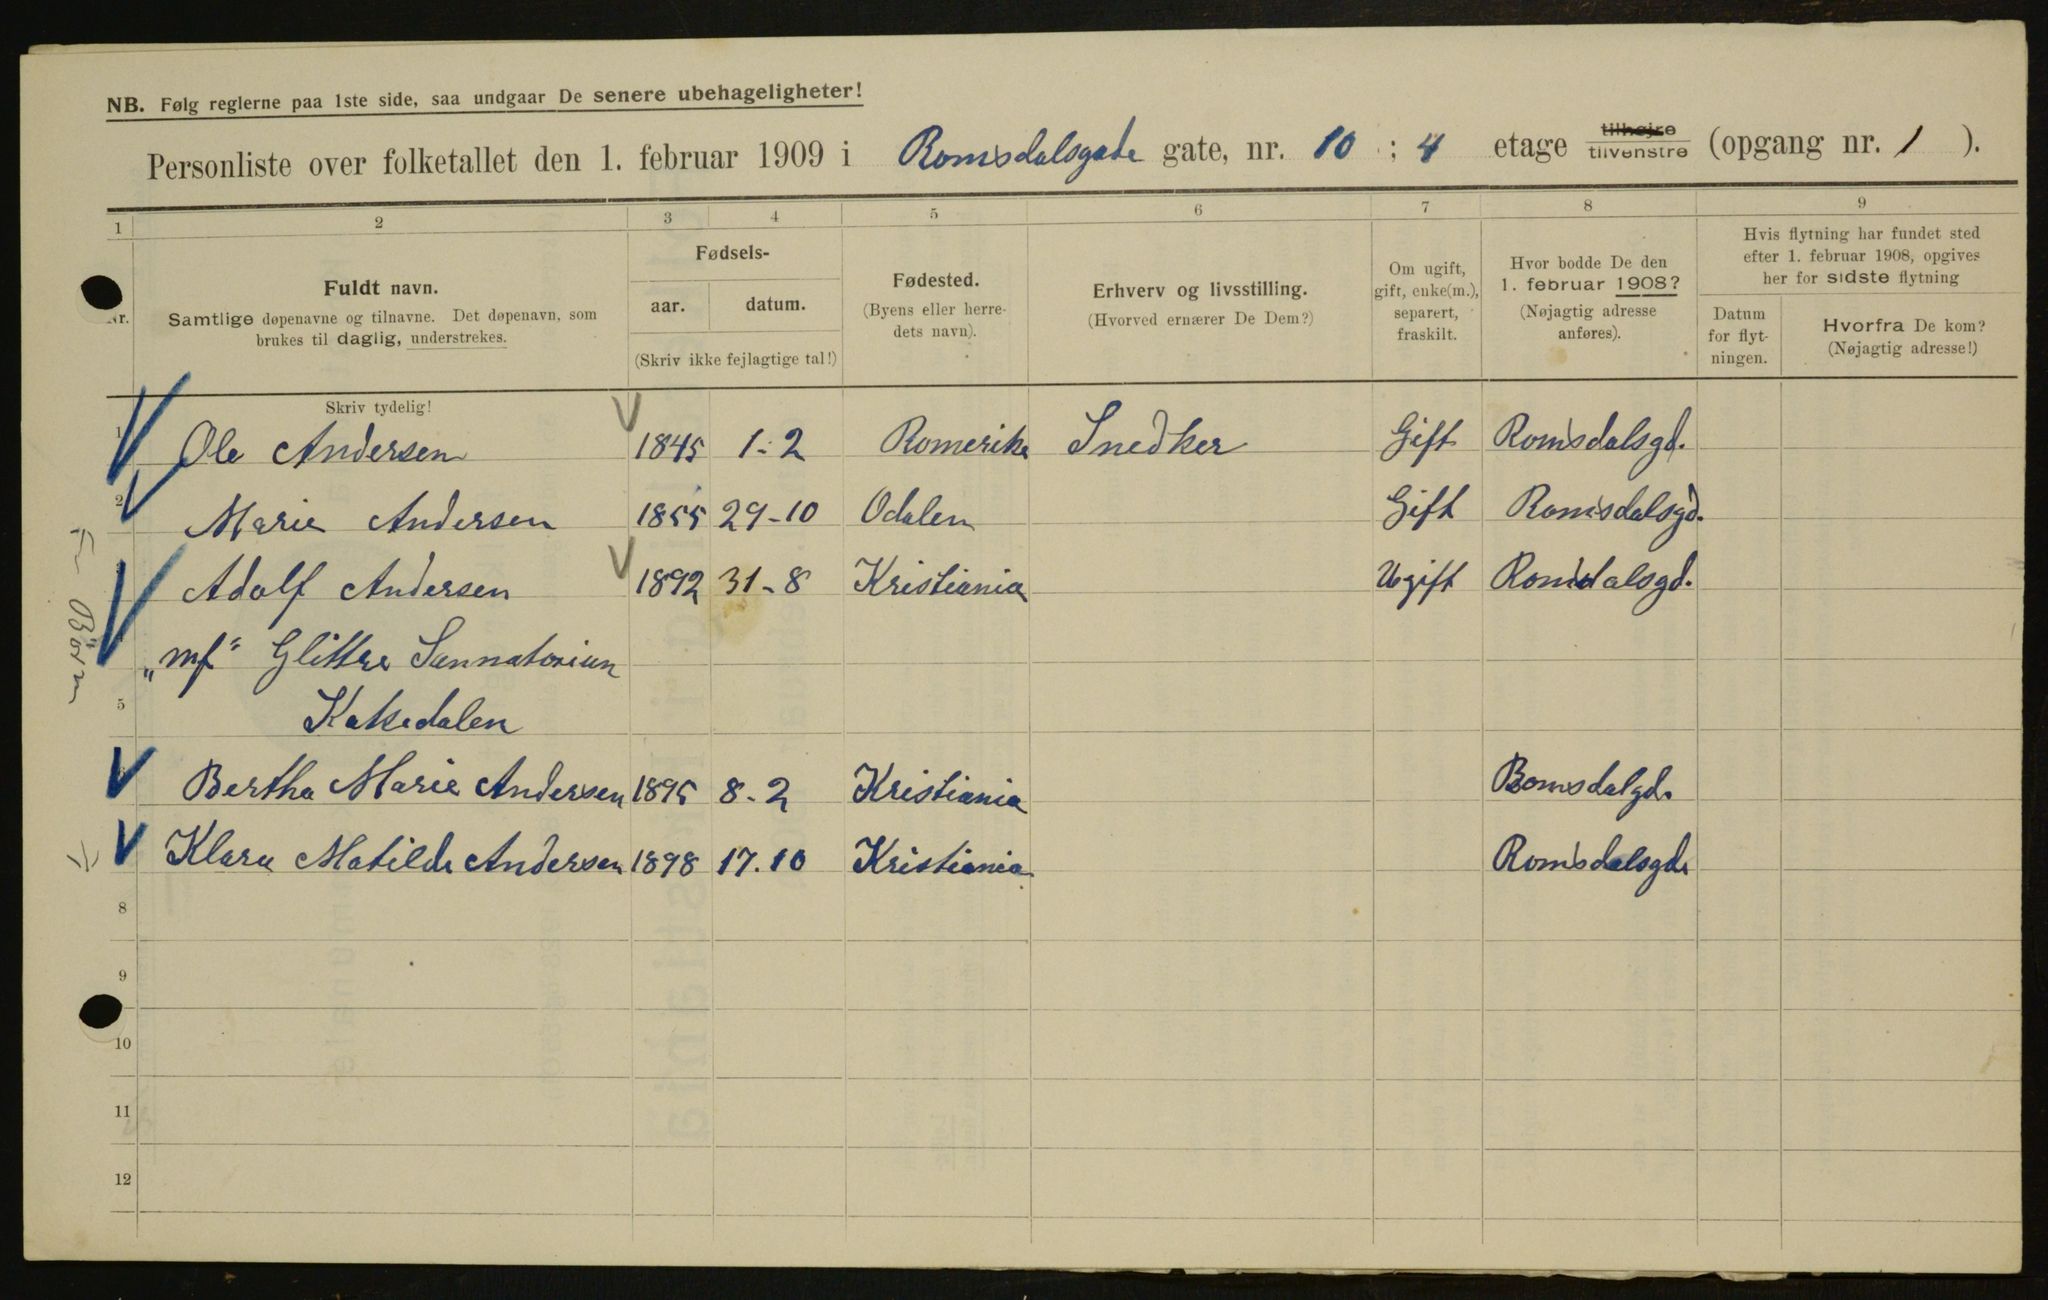 NB. Følg reglerne paa 1ste side, saa undgaar De senere ubehageligheter!
Personliste over folketallet den 1. februar 1909 i Romsdalsgade gate, nr. 10 ; 4 etage tilhøjre tilvenstre (opgang nr. 1 ).
1 2 3 4 5 6 7 8 9
Nr.
Fuldt navn.
Samtlige døpenavne og tilnavne. Det døpenavn, som
brukes til daglig, understrekes.
Fødsels-
aar. datum.
(Skriv ikke fejlagtige tal!)
Fødested.
(Byens eller herre-
dets navn).
Erhverv og livsstilling.
(Hvorved ernærer De Dem?)
Om ugift,
gift, enke(m.),
separert,
fraskilt.
Hvor bodde De den
1. februar 1908?
(Nøjagtig adresse
anføres).
Hvis flytning har fundet sted
efter 1. februar 1908, opgives
her for sidste flytning
Datum
for flyt-
ningen.
Hvorfra De kom?
(Nøjagtig adresse!)
Skriv tydelig!
1 Ole Andersen 1845 1-2 Romerike Snedker Gift Romsdalsgd.
2 Marie Andersen 1855 29-10 Odalen Gift Romsdalsgd.
Adolf Andersen 1892 31-8 Kristiania Ugift Romsdalsgd.
"mf" Glittre Sannatorium
5 Kakedalen
Bertha Marie Andersen 1895 8-2 Kristiania Romsdalgd.
Klara Matilde Andersen 1898 17.10 Kristiania Romsdalsgd.
8
9
10
11
12
Börn